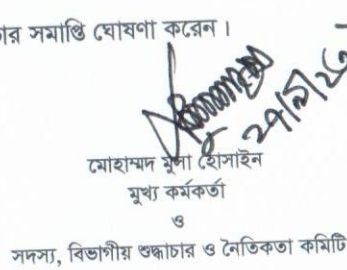 সমাপ্তি ঘোষণা করেন ।
মোহাম্মদ মুসা হোসাইন
মুখ্য কর্মকর্তা
ও
সদস্য, বিভাগীয় শুদ্ধাচার ও নৈতিকতা কমিটি